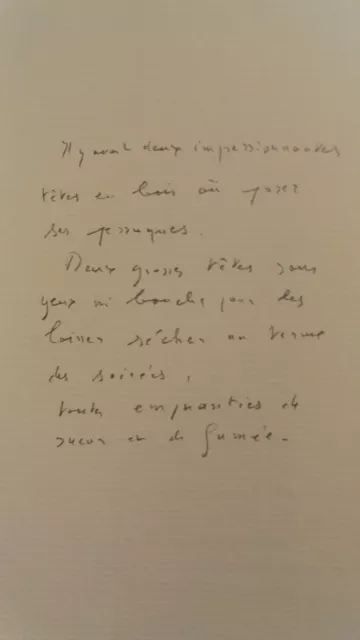 Il y avait deux impressionnantes
têtes en bois où poser
ses perruques.
Deux grosses têtes sans
yeux ni bouche pour les
laisser sécher au terme
des soirées,
toutes empuanties de
sueur et de fumée.